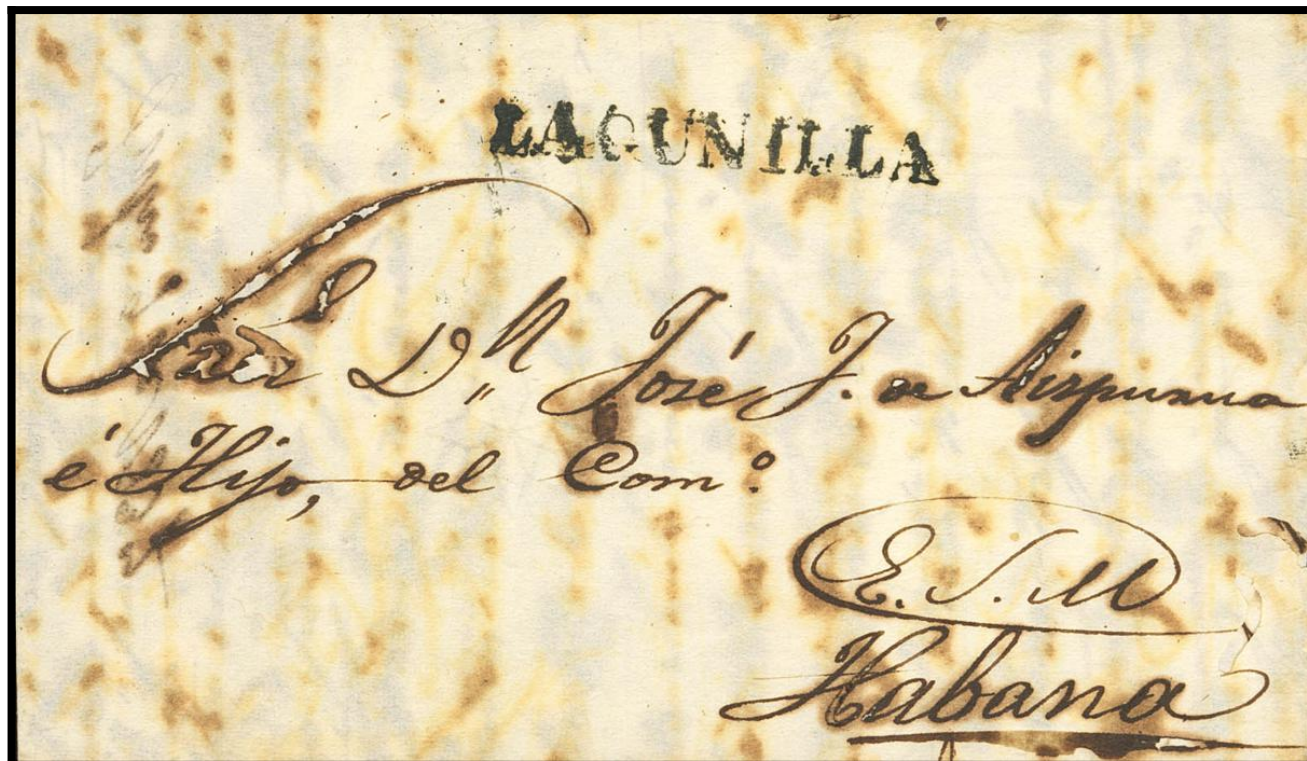 LAGUNILLA
Dⁿ José J. de Aizpurua
é Hijo, del Comº
E. S. M
Habana